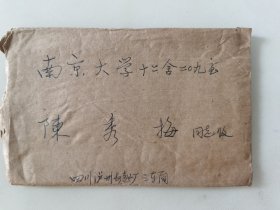 南京大学十二舍二〇九室
陳秀梅 同志收
四川泸州